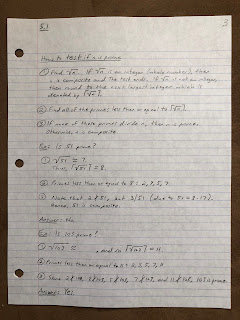 5.1
3
How to test if n is prime
① Find √n. If √n is an integer (whole number), then
n is composite and the test ends. If √n is not an integer,
then round to the next largest integer, which is
denoted by ⌈√n⌉.
② Find all of the primes less than or equal to ⌈√n⌉.
③ If none of these primes divide n, then n is prime.
Otherwise n is composite
Ex: Is 51 prime?
① √51 ≈ 7.
Thus, ⌈√51⌉ = 8
② Primes less than or equal to 8: 2, 3, 5, 7
③ Note that 2∤51, but 3|51 (due to 51 = 3·17).
Hence, 51 is composite.
Answer: No
Ex: Is 103 prime?
① √103 ≈ , and so ⌈√103⌉ = 11
② Primes less than or equal to 11: 2, 3, 5, 7, 11
③ Since 2∤103, 3∤103, 5∤103, 7∤103, and 11∤103, 103 is prime.
Answer: Yes